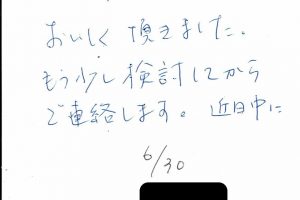 おいしく頂きました。
もう少し検討してから
ご連絡します。近日中に
6/30